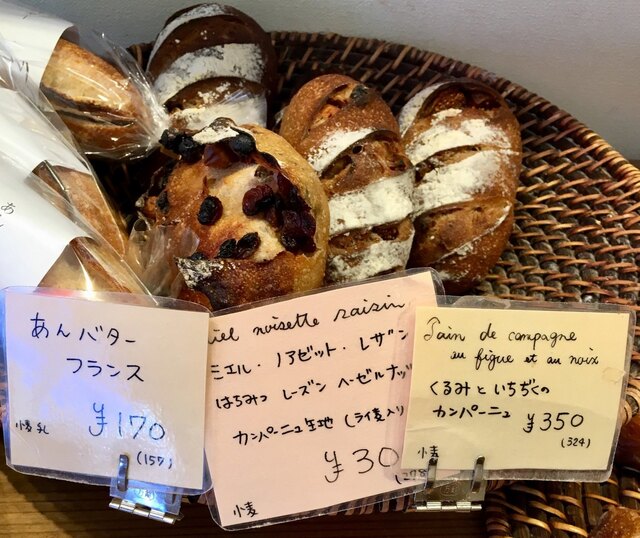 あんバター
フランス
¥170
(157)
小麦 乳
iel noisette raisin
ミエル・ノアゼット・レザン
はちみつ レーズン ヘーゼルナッツ
カンパーニュ生地 (ライ麦入り
¥30
小麦
Pain de campagne
au figue et au noix
くるみと いちぢくの
カンパーニュ
¥350
(324)
小麦